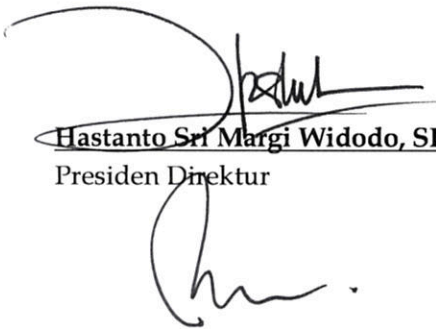 Hastanto Sri Margi Widodo, SE
Presiden Direktur